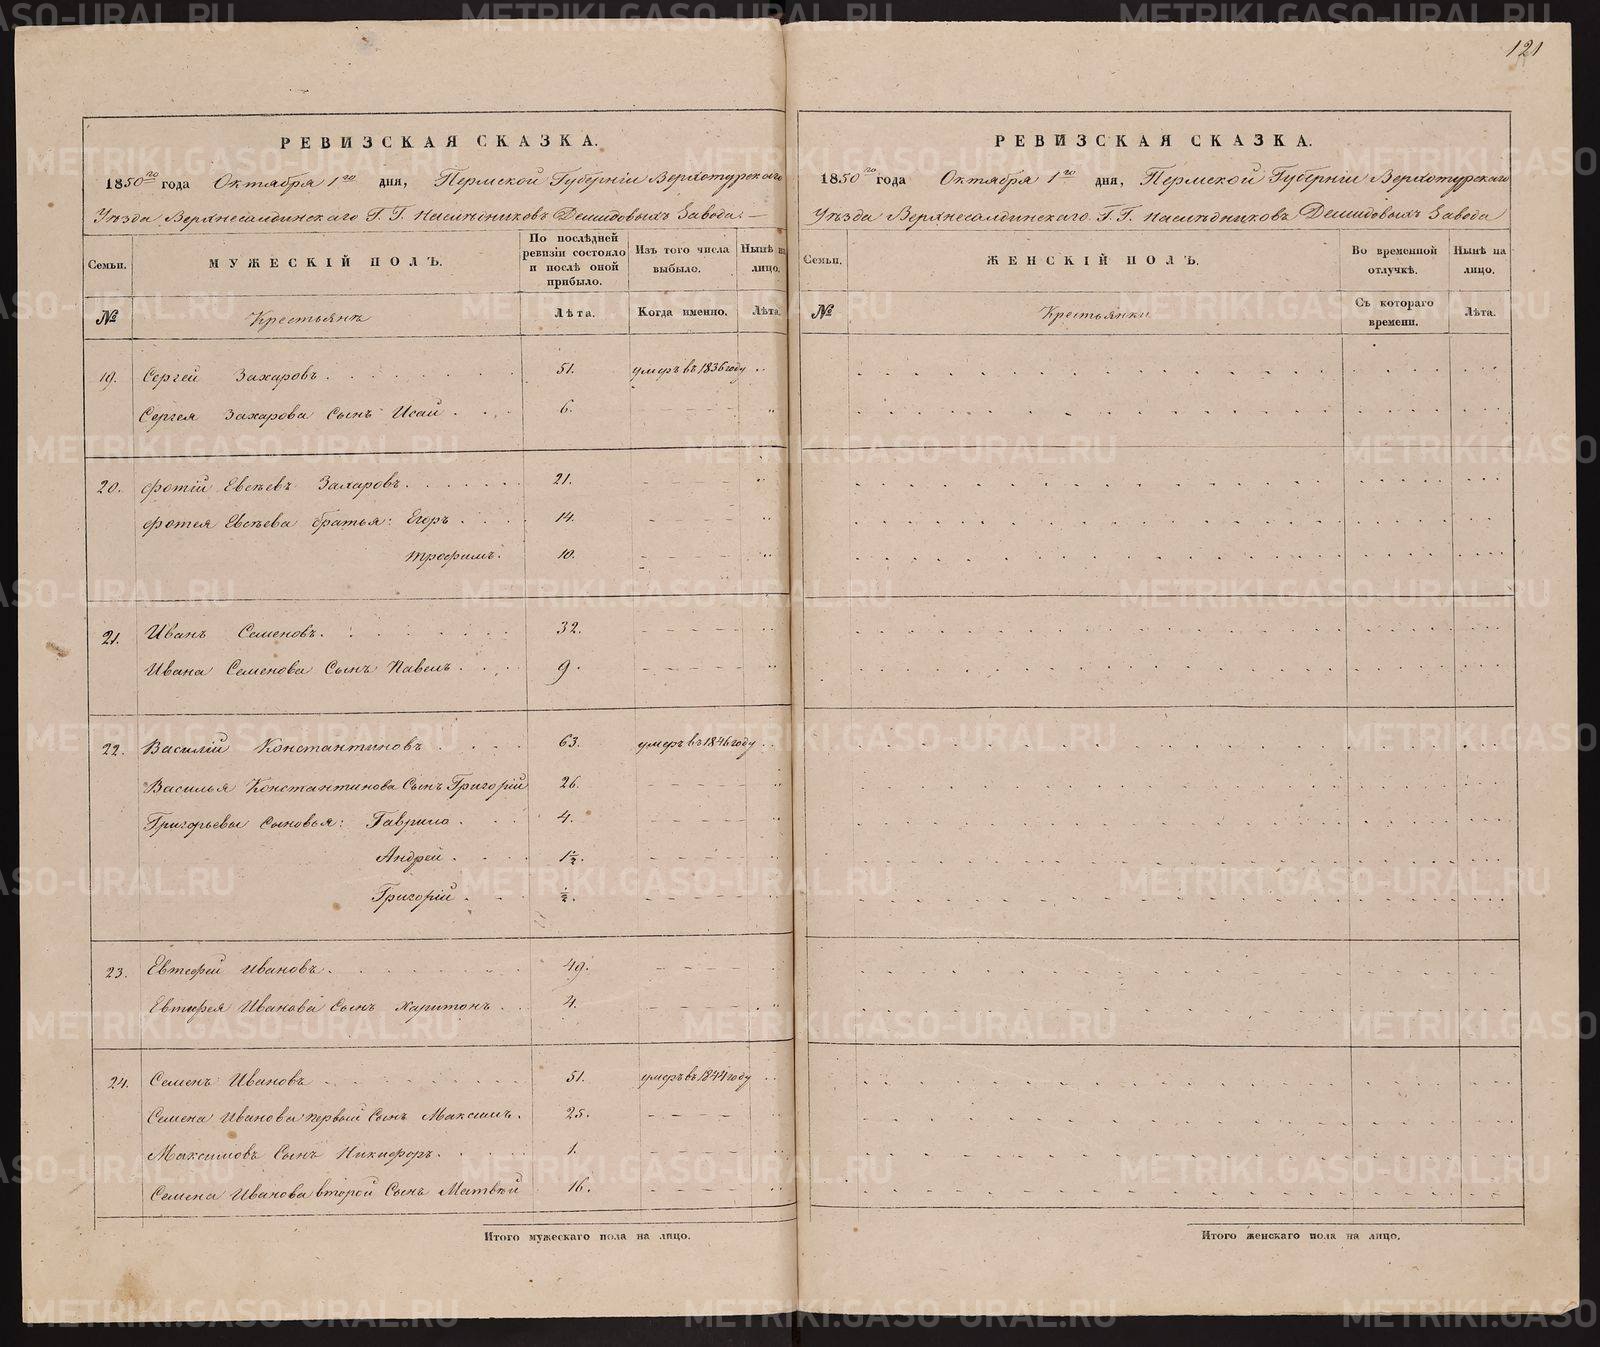 121
РЕВИЗСКАЯ СКАЗКА.
1850го года Октября 1го дня, Пермской Губернiи Верхотурскаго
Уѣзда Верхнесалдинскаго Г. Г. Наслѣдниковъ Демидовыхъ Завода. —
Семьи.
МУЖЕСКІЙ ПОЛЪ.
По послѣдней ревизіи состояло и послѣ оной прибыло.
Изъ того числа выбыло.
Нынѣ на лицо.
№
Крестьянъ
Лѣта.
Когда именно.
Лѣта.
19. Сергей Захаровъ 51. умеръ въ 1836 году
Сергея Захарова Сынъ Исай 6.
20. Фотiй Евсѣевъ Захаровъ 21.
Фотея Евсѣева братья: Егоръ 14.
Трофимъ. 10.
21. Иванъ Семеновъ. 32.
Ивана Семенова Сынъ Павелъ 9.
22. Василiй Константиновъ 63. умеръ въ 1846 году
Василья Константинова Сынъ Григорiй 26.
Григорьевы Сыновья: Гаврило 4.
Андрей 1½.
Григорiй ½.
23. Евтефей Ивановъ 49.
Евтифея Иванова Сынъ Харитонъ 4.
24. Семенъ Ивановъ 51. умеръ въ 1844 году
Семена Иванова первый Сынъ Максимъ. 25.
Максимовъ Сынъ Никифоръ. 1.
Семена Иванова второй Сынъ Матвѣй 16.
Итого мужескаго пола на лицо.
РЕВИЗСКАЯ СКАЗКА.
1850го года Октября 1го дня, Пермской Губернiи Верхотурскаго
Уѣзда Верхнесалдинскаго Г. Г. Наслѣдниковъ Демидовыхъ Завода
Семьи.
ЖЕНСКІЙ ПОЛЪ.
Во временной отлучкѣ.
Нынѣ на лицо.
№
Крестьянки
Съ котораго времени.
Лѣта.
Итого женскаго пола на лицо.
METRIKI.GASO-URAL.RU